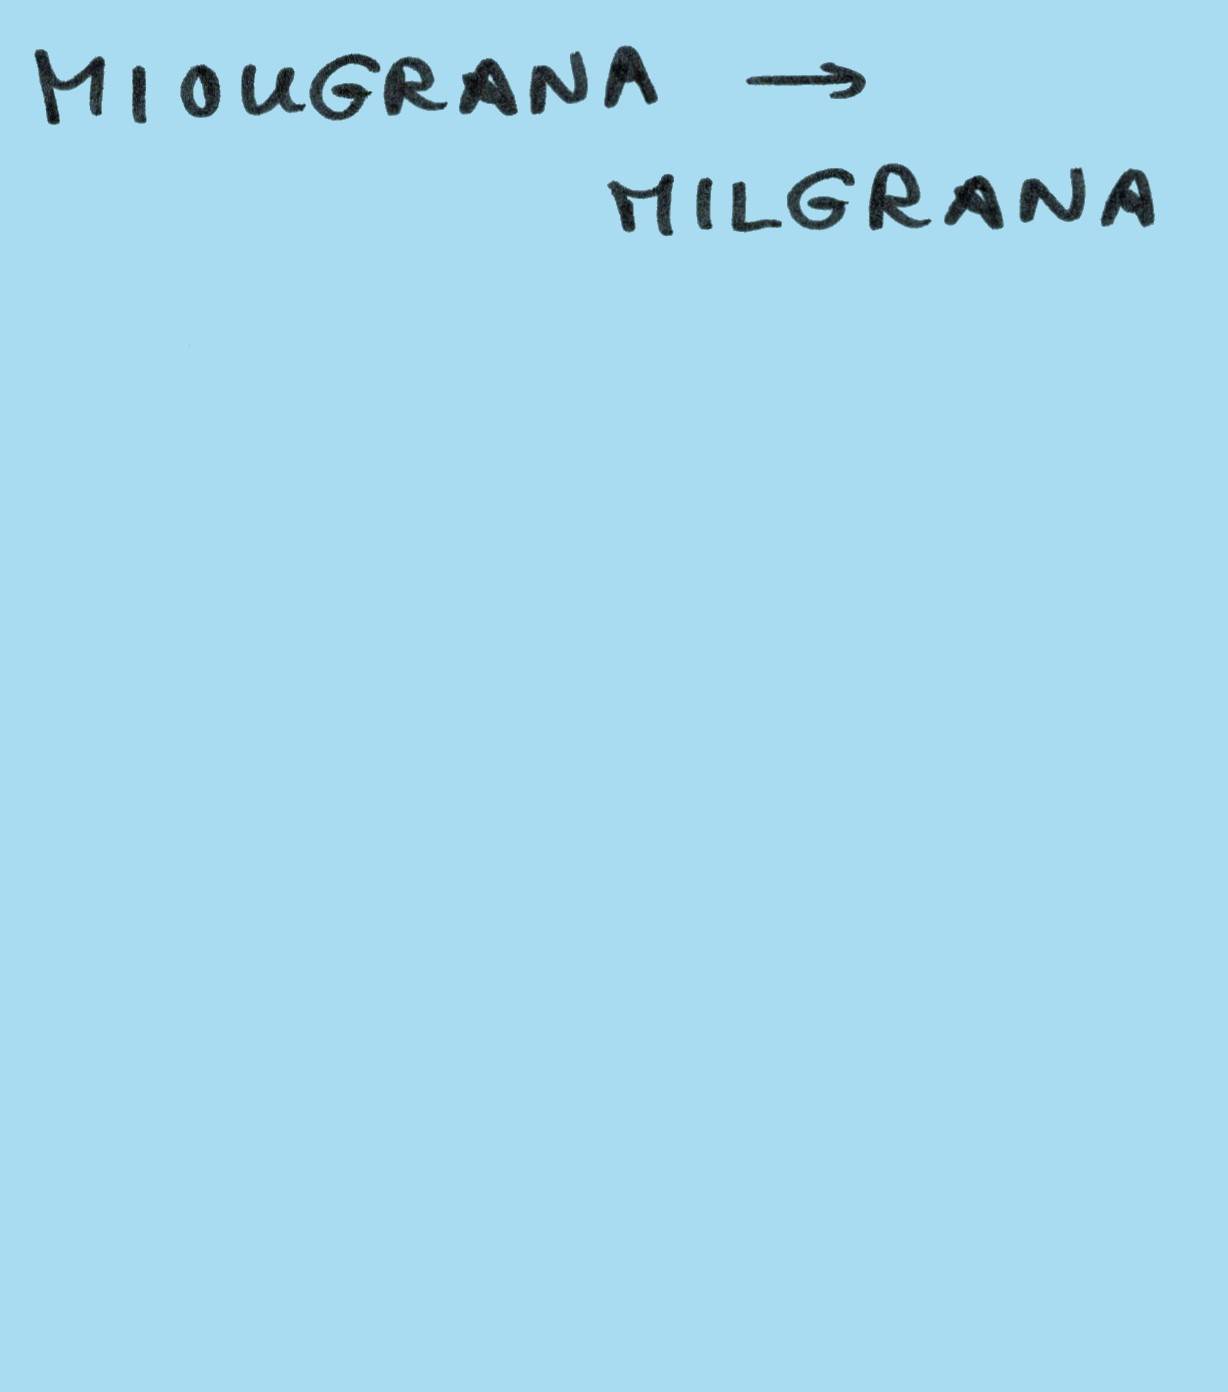 MIOUGRANA →
MILGRANA